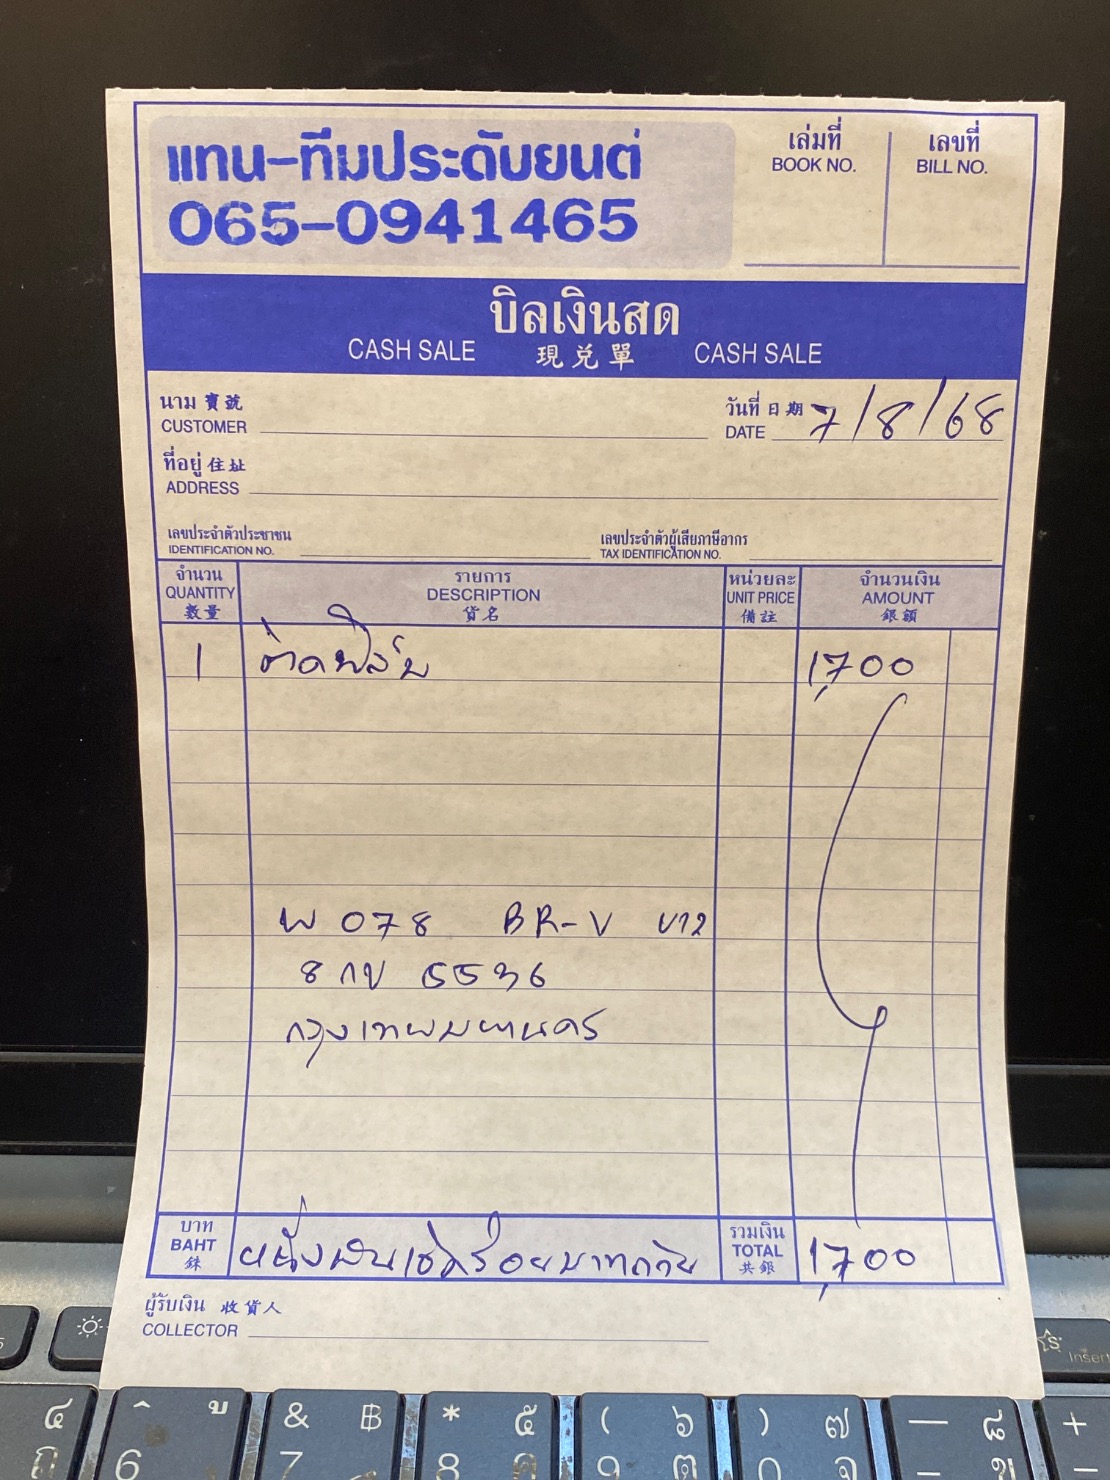 แทน-ทีมประดับยนต์
065-0941465
เล่มที่
BOOK NO.
เลขที่
BILL NO.
บิลเงินสด
CASH SALE 現兑單 CASH SALE
นาม 寶號
CUSTOMER
วันที่ 日期 7/8/68
DATE
ที่อยู่ 住址
ADDRESS
เลขประจำตัวประชาชน
IDENTIFICATION NO.
เลขประจำตัวผู้เสียภาษีอากร
TAX IDENTIFICATION NO.
จำนวน
QUANTITY
數量
รายการ
DESCRIPTION
貨名
หน่วยละ
UNIT PRICE
備註
จำนวนเงิน
AMOUNT
銀額
1 ติดฟิล์ม 1,700
W 078 BR-V
8 กข 5536
กรุงเทพมหานคร
บาท
BAHT
銖
หนึ่งพันเจ็ดร้อยบาทถ้วน
รวมเงิน
TOTAL
共銀
1,700
ผู้รับเงิน 收貨人
COLLECTOR
Insert
๔ ^ บ & ฿ * ๕ ( ๖ ) ๗ — ๘ +
ถ 6 7 8 ค 9 ต 0 จ - ข